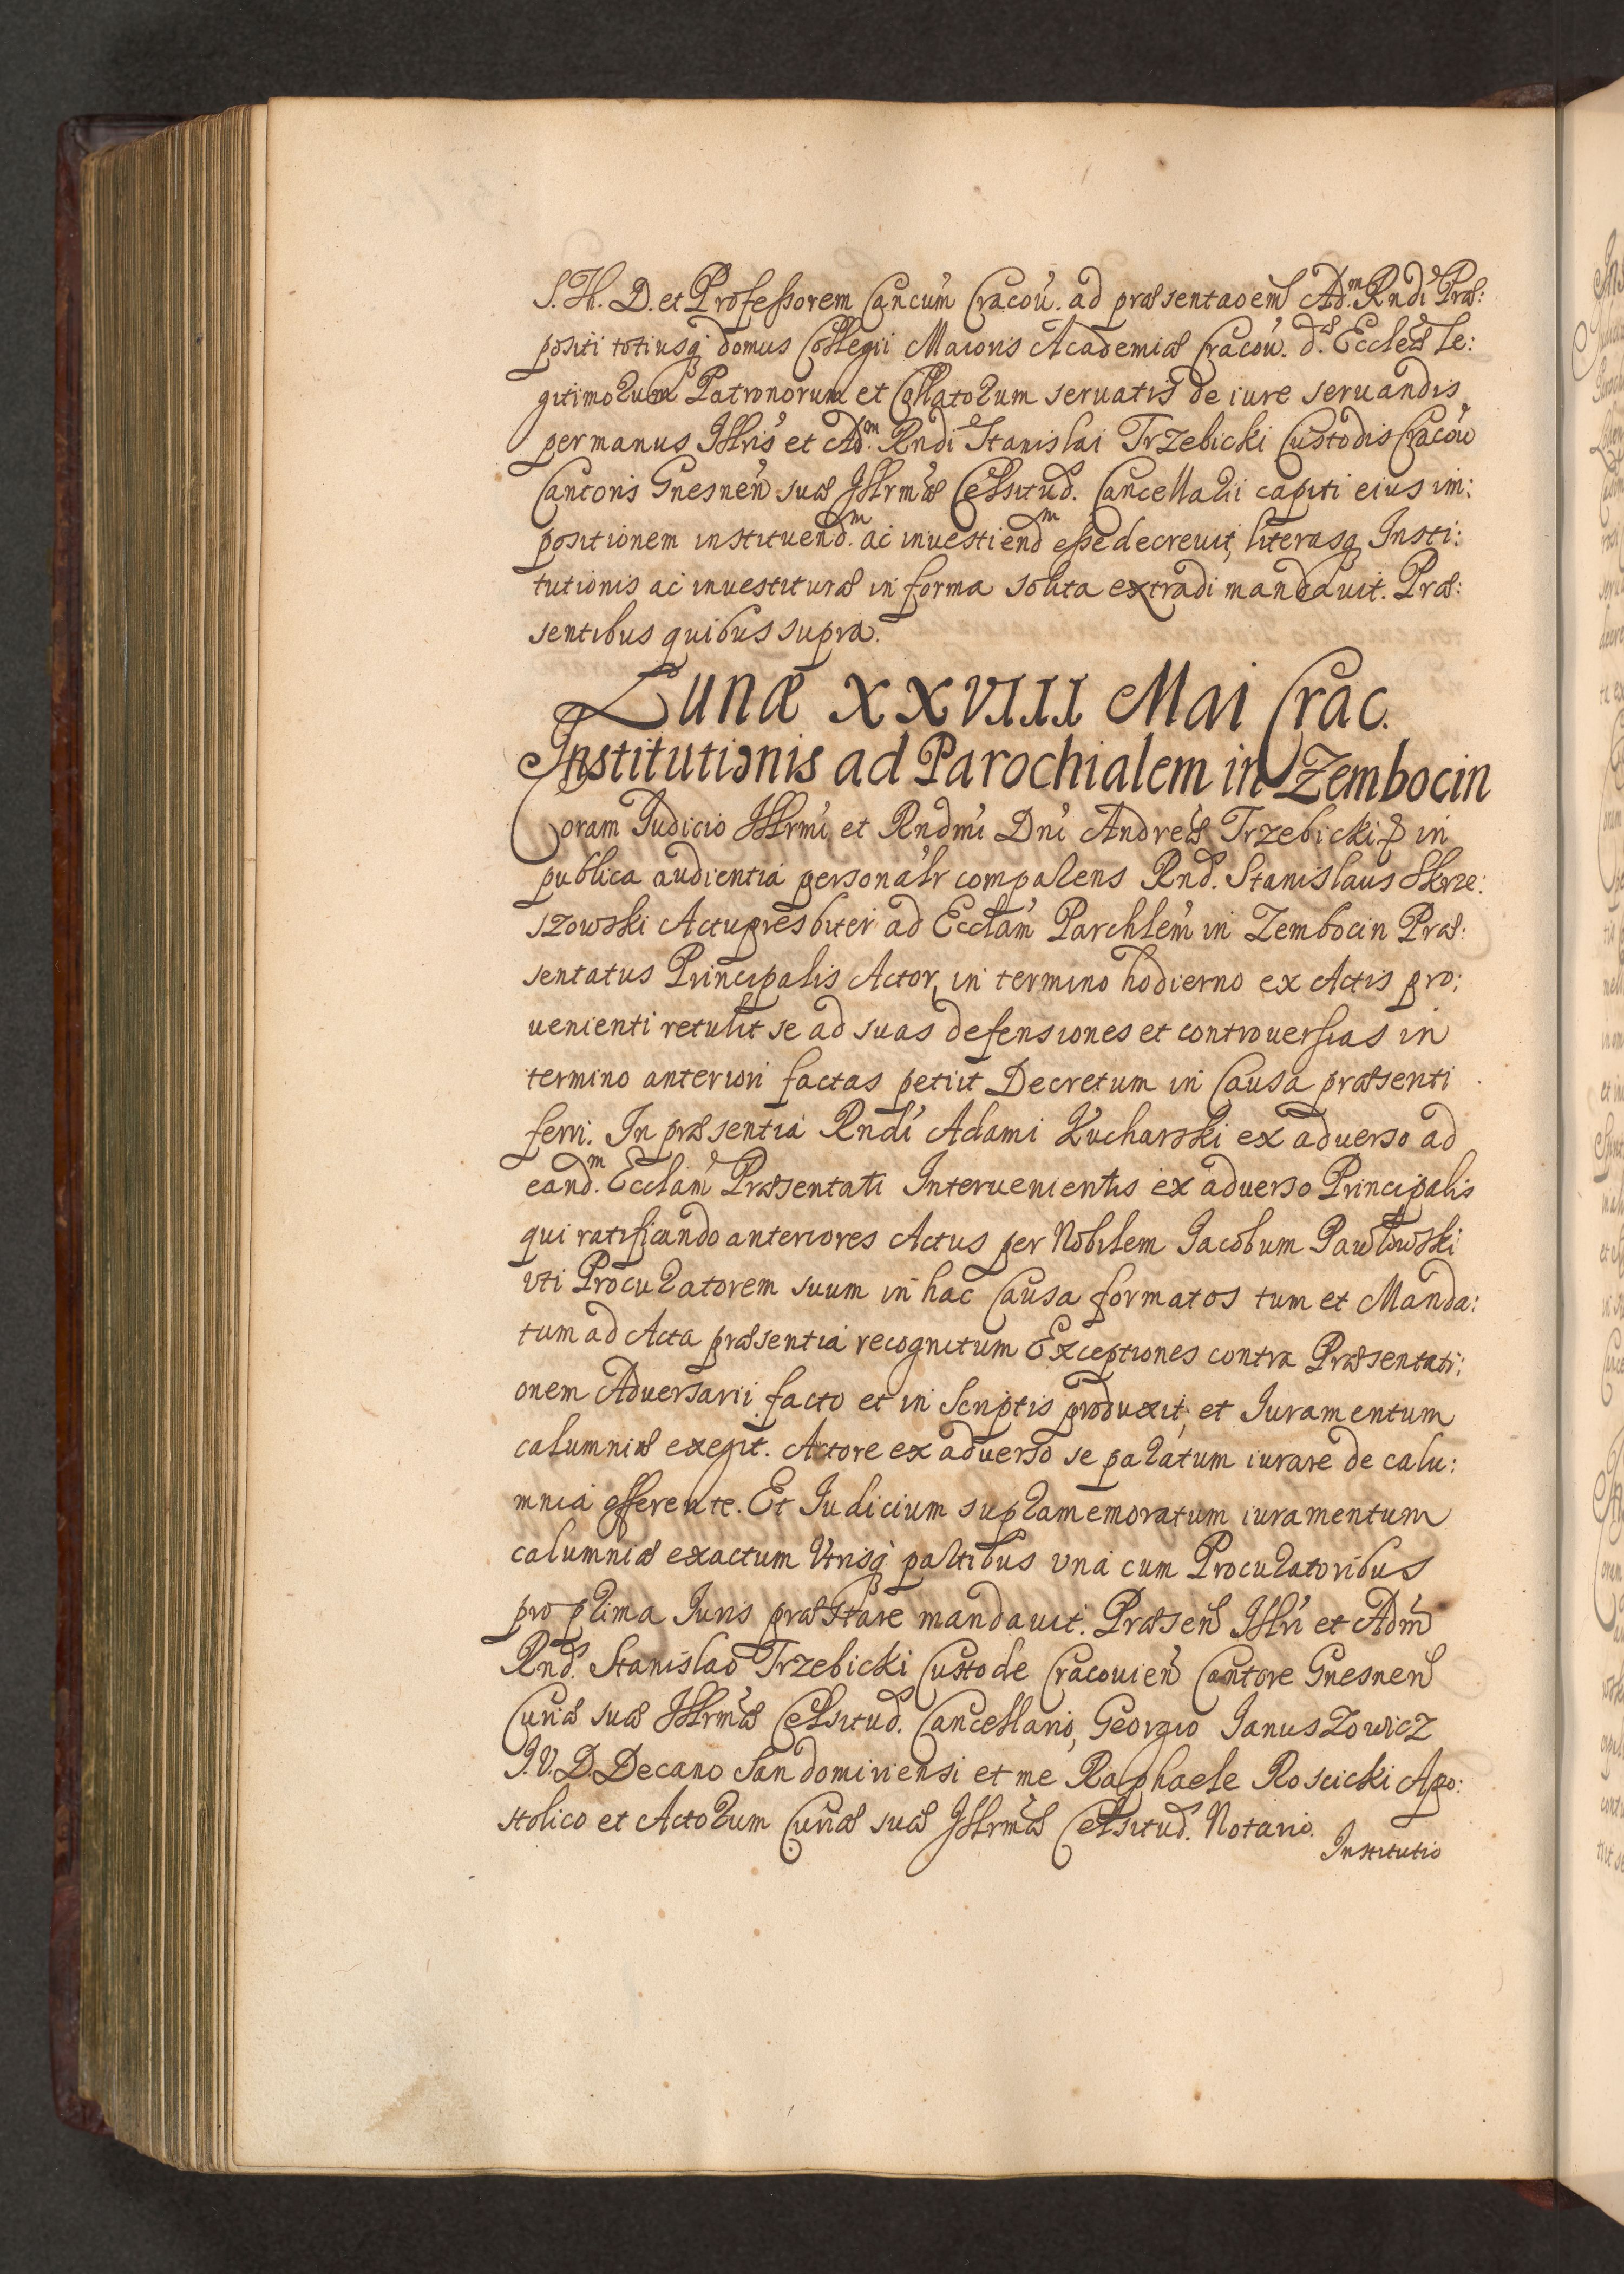 S. Th. D. et Professorem Cancum Cracou. ad præsentaoem Adm. Rndi Præ:
positi totiusq domus Collegii Maioris Academiæ Cracou. dæ Eccleæ le:
gitimorum Patronorum et Collatorum seruatis de iure seruandis
per manus Illris et Adm. Rndi Stanislai Trzebicki Custodis Cracou
Cantoris Gnesnen suæ Illrmæ Celsitud. Cancellarii capiti eius im:
positionem instituendm. ac inuestiendm esse decreuit, literasq Insti:
tutionis ac inuestituræ in forma solita extradi mandauit. Præ:
sentibus quibus supra.
Lunæ XXVIII Mai Crac.
Institutionis ad Parochialem in Zembocin
Coram Judicio Illrmi et Rndmi Dni Andreæ Trzebicki in
publica audientia personalr comparens Rnd. Stanislaus Skrze:
szowski Actupresbiter ad Ecclam Parchlem in Zembocin Præ:
sentatus Principalis Actor, in termino hodierno ex Actis pro:
uenienti retulit se ad suas defensiones et controuersias in
termino anteriori factas petiit Decretum in Causa præsenti
ferri. In præsentia Rndi Adami Kucharski ex aduerso ad
eandm. Ecclam Præsentati Interuenientis ex aduerso Principalis
qui ratificando anteriores Actus per Nobilem Jacobum Pawłowski
vti Procuratorem suum in hac Causa formatos tum et Manda:
tum ad Acta præsentia recognitum Exceptiones contra Præsentati:
onem Aduersarii facto et in Scriptis produxit, et Iuramentum
calumniæ exegit. Actore ex aduerso se paratum iurare de calu:
mnia offerente. Et Iudicium supramemoratum iuramentum
calumniæ exactum Vtrisq partibus vna cum Procuratoribus
pro prima Iuris præstare mandauit. Præsen Illri et Adm
Rnds. Stanislao Trzebicki Custode Cracouien Cantore Gnesnen
Curiæ suæ Illrmæ Celsitud. Cancellario, Georgio Januszowicz
J. V. D. Decano Sandomiriensi et me Raphaele Roscicki Apo:
stolico et Actorum Curiæ suæ Illrmæ Celsitud. Notario.
Institutio